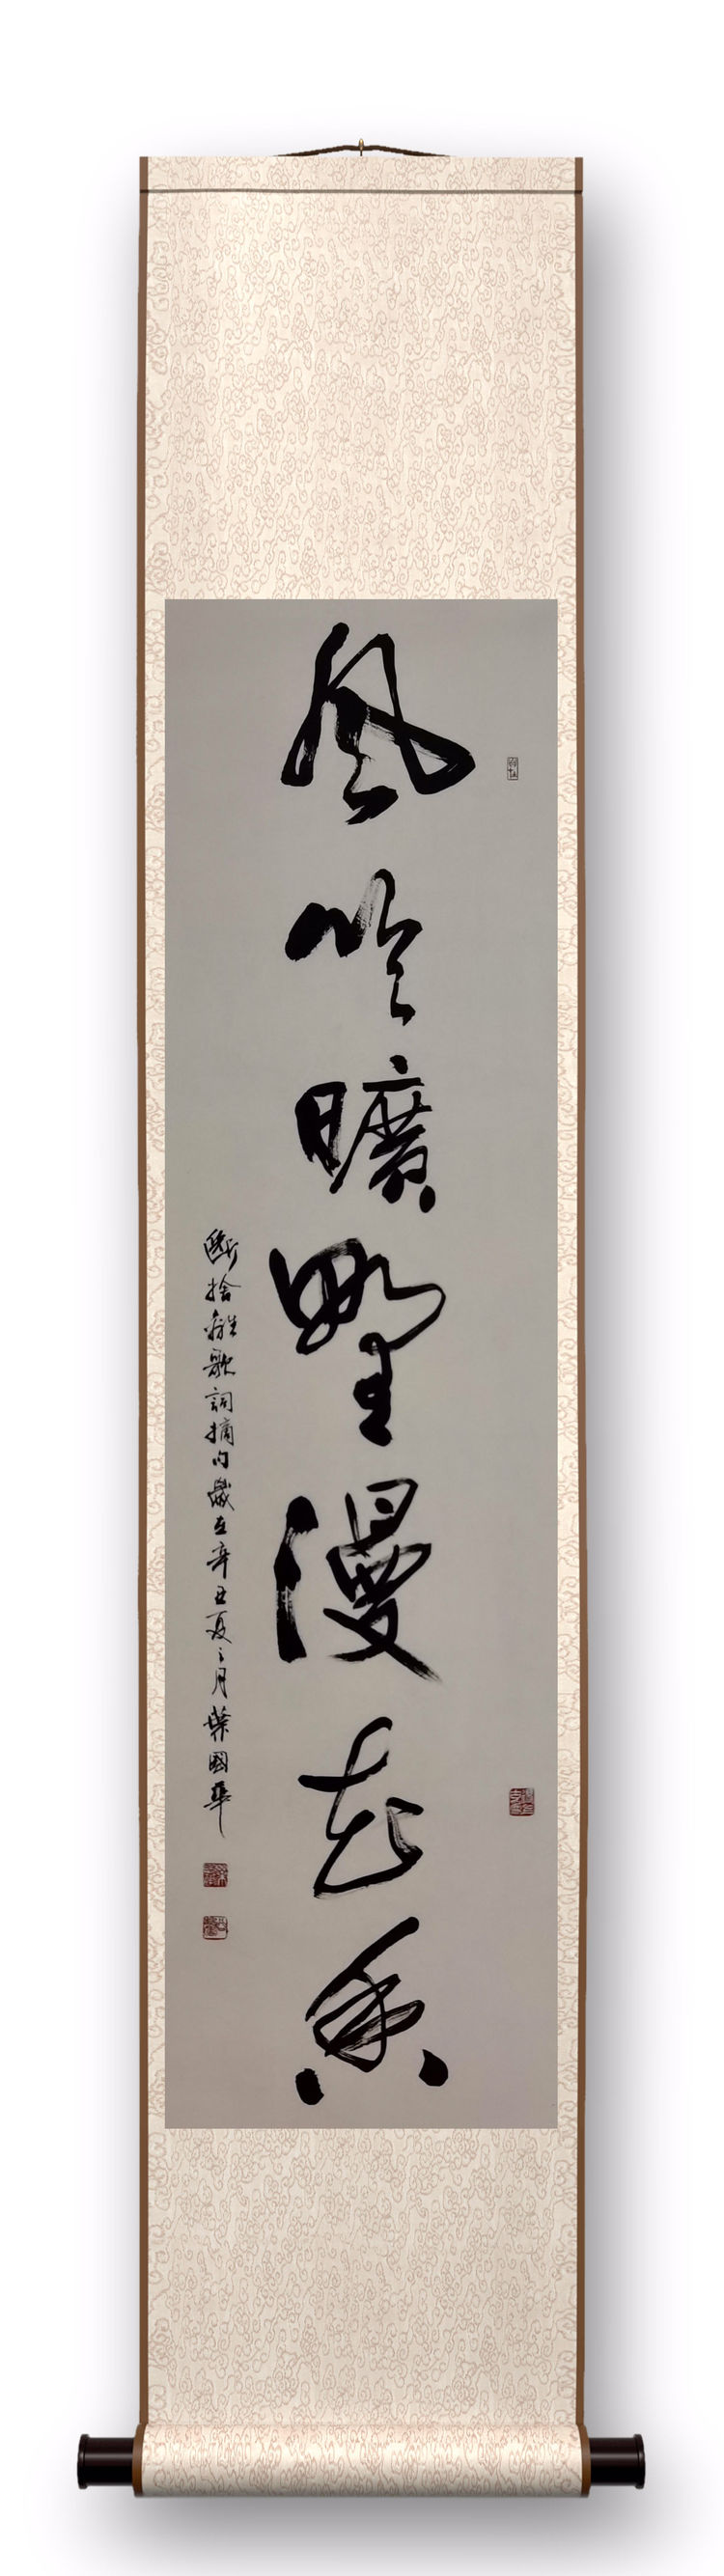 風吹曠野漫花香
斷捨離歌詞摘句歲在辛丑夏之月葉國華